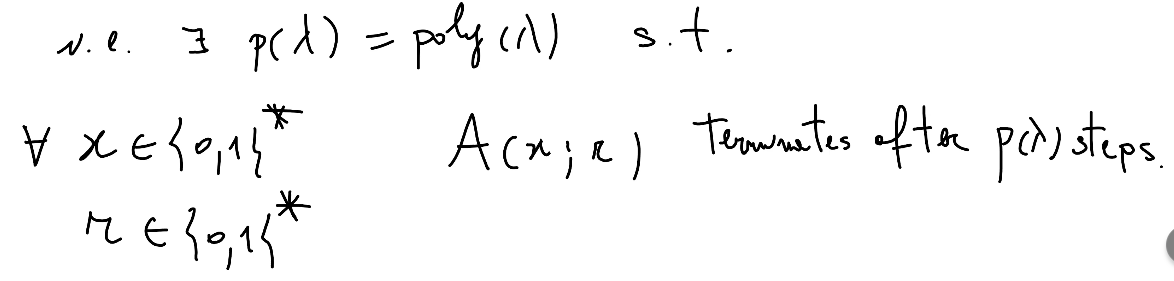 i.e. ∃ p(λ) = poly(λ) s.t.
∀ x ∈ {0,1}* A(x; r) Terminates after p(λ) steps.
r ∈ {0,1}*